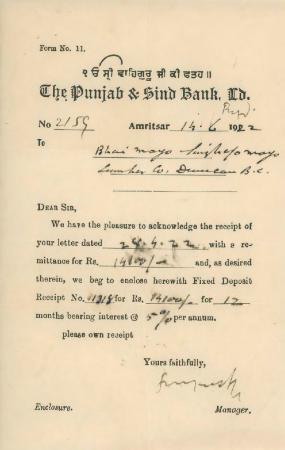 Form No. 11.
੧ ਓ ਸ੍ਰੀ ਵਾਹਿਗੁਰੂ ਜੀ ਕੀ ਫਤਹ ॥
The Punjab & Sind Bank, Ld.
No 2159 Amritsar 14.6 1922
To
Bhai mayo Singh c/o mayo
Lumber Co. Duncan B.C.
DEAR SIR,
We have the pleasure to acknowledge the receipt of
your letter dated 28.4.22 with a re-
mittance for Rs. 14100/- and, as desired
therein, we beg to enclose herewith Fixed Deposit
Receipt No. for Rs. 14100/- for 12
months bearing interest @ 5% per annum.
please own receipt
Yours faithfully,
Enclosure. Manager.